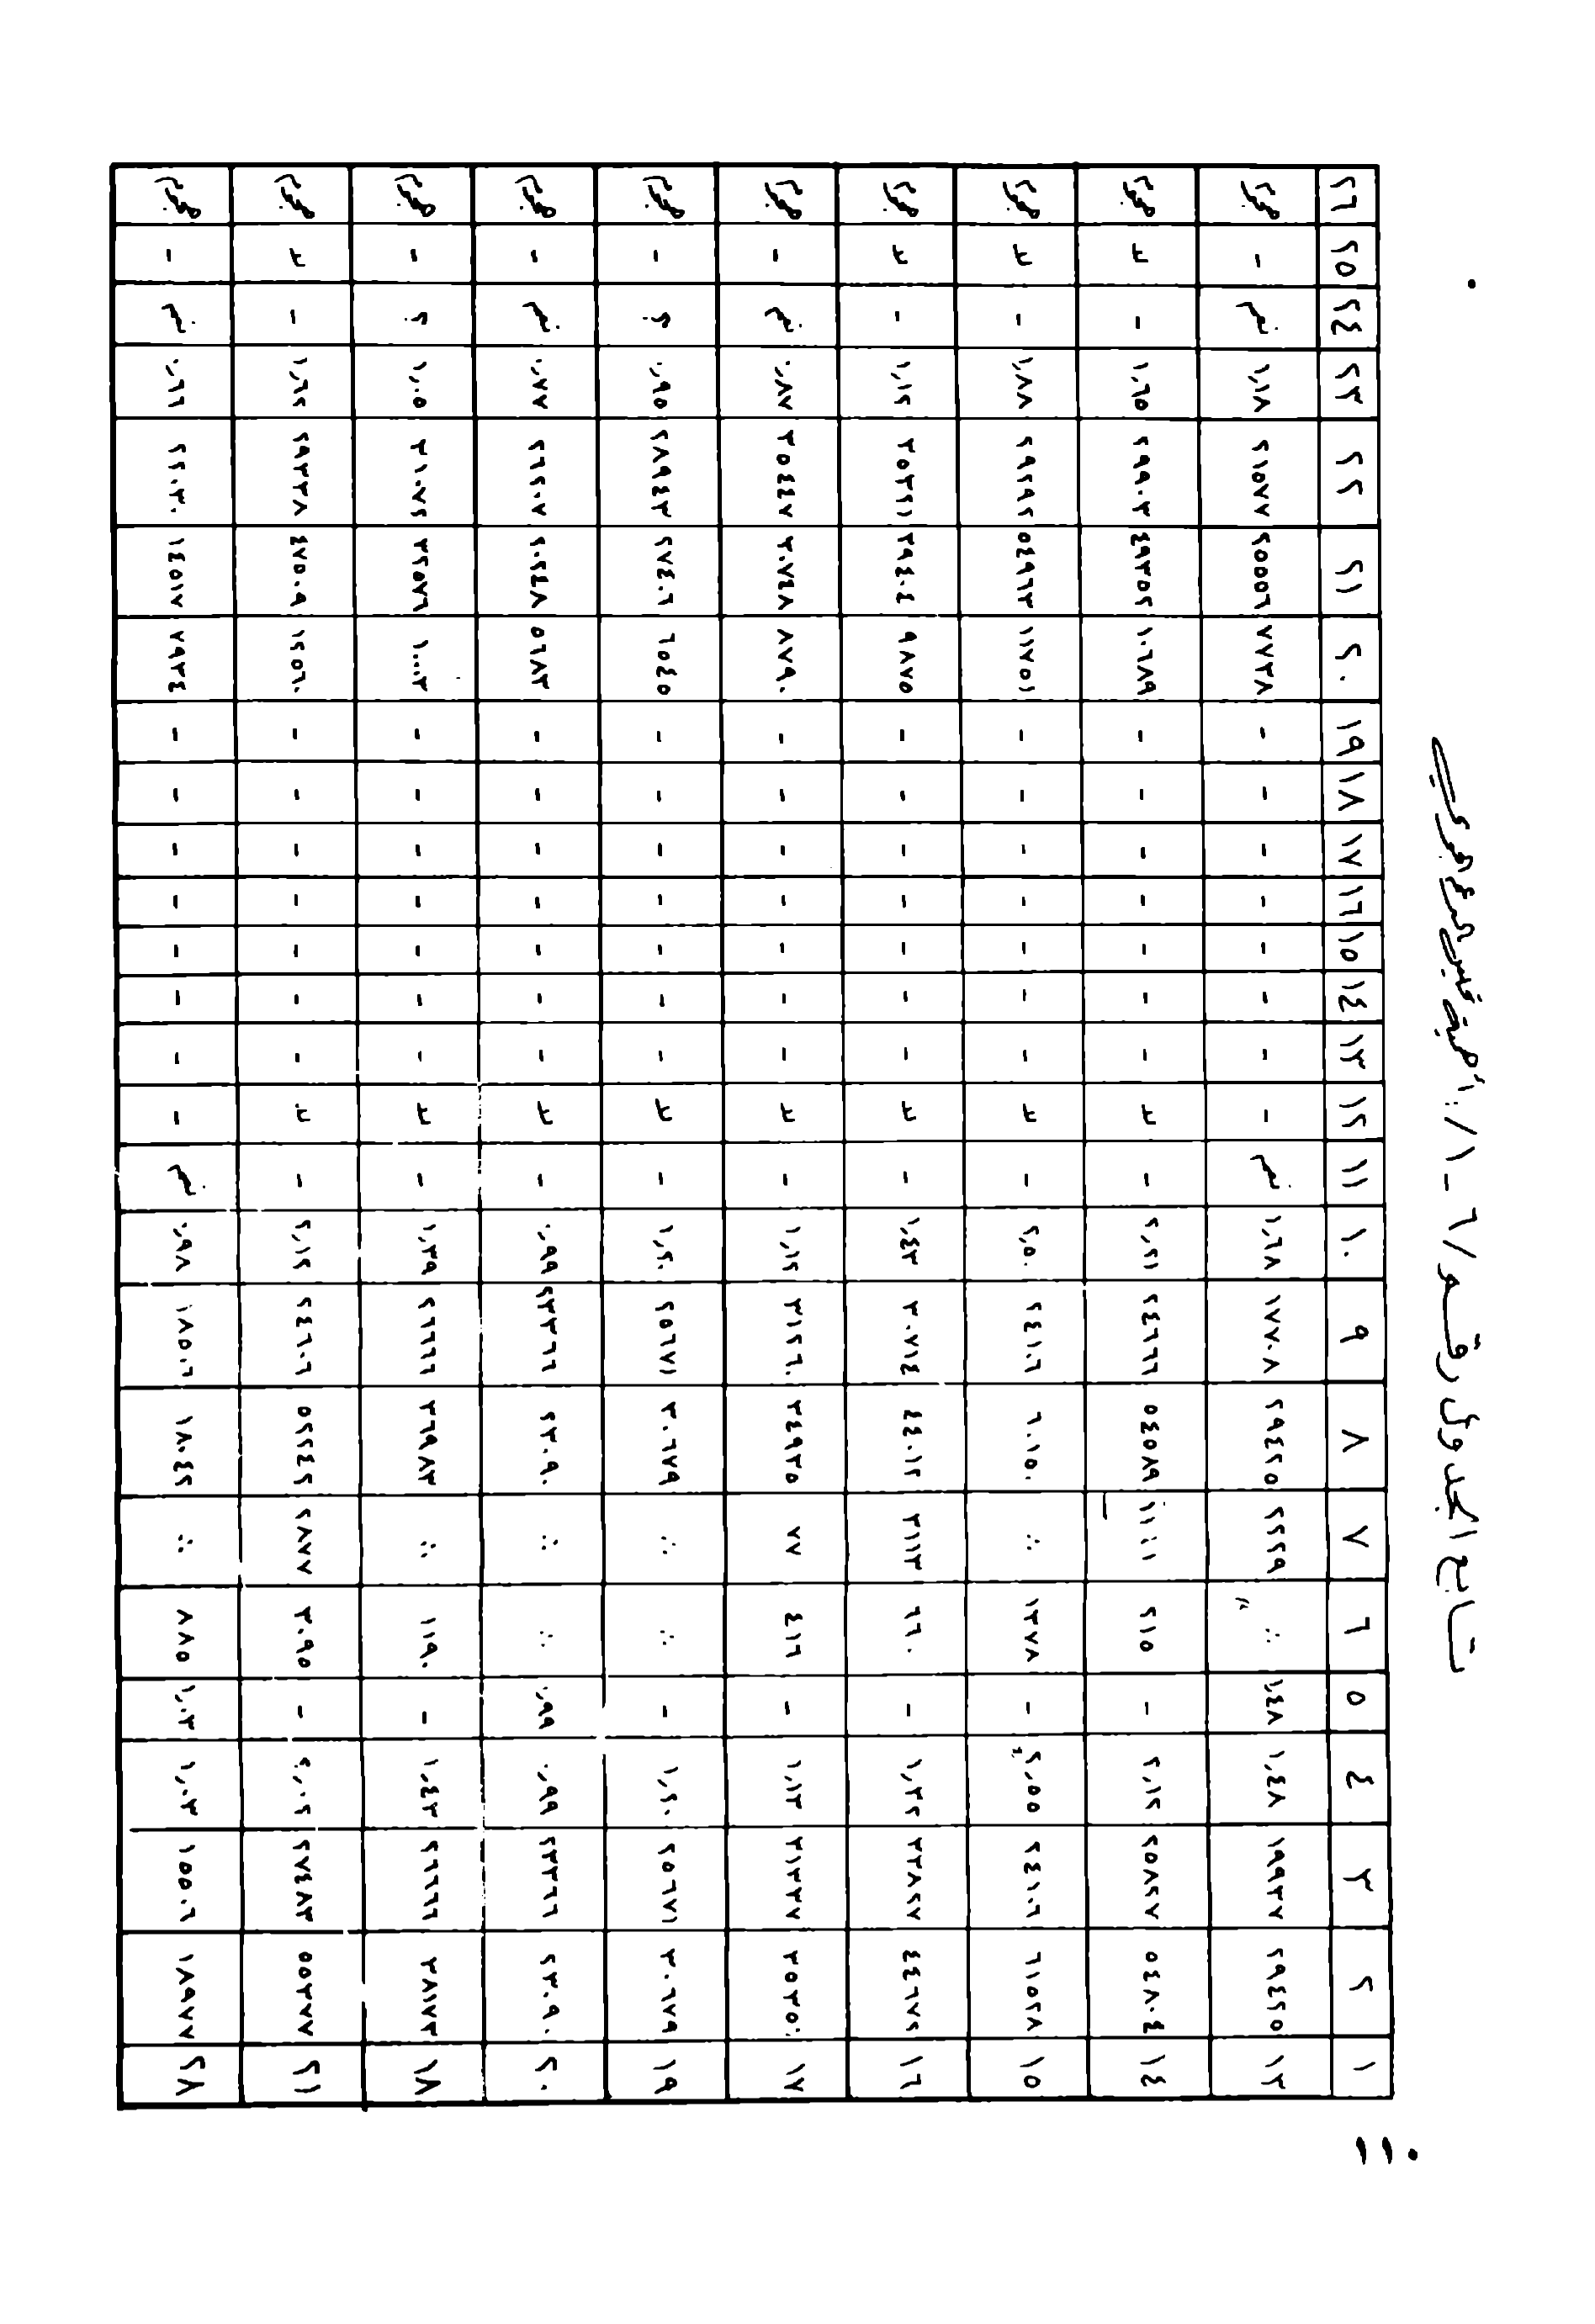 تابع الجدول رقم /٦-١/:
١ ٢ ٣ ٤ ٥ ٦ ٧ ٨ ٩ ١٠ ١١ ١٢ ١٣ ١٤ ١٥ ١٦ ١٧ ١٨ ١٩ ٢٠ ٢١ ٢٢ ٢٣ ٢٤ ٢٥ ٢٦
١٣ ٢٩٤٢٥ ١٩٩٣٧ ١,٤٨ ١,٤٨ ∴ ٢٢٢٩ ٢٩٤٢٥ ١٧٧٠٨ ١,٦٨ نعم - - - - - - - - ٧٧٣٨ ٢٥٥٥٦ ٢١٥٧٧ ١,١٨ نعم - هجوم
١٤ ٥٤٨٠٤ ٢٥٨٢٧ ٢,١٢ - ٢١٥ ١١١١ ٥٤٥٨٩ ٢٤٦٦٦ ٢,٢١ - لا - - - - - - - ١٠٦٨٩ ٤٩٣٥٢ ٢٩٩٠٣ ١,٦٥ - لا هجوم
١٥ ٦١٥٢٨ ٢٤١٠٦ ٢,٥٥ - ١٣٧٨ ∴ ٦٠١٥٠ ٢٤١٠٦ ٢,٥٠ - لا - - - - - - - ١١٧٥١ ٥٤٩٦٣ ٢٩٢٩٢ ١,٨٨ - لا هجوم
١٦ ٤٤٦٧٢ ٣٣٨٢٧ ١,٣٢ - ٦٦٠ ٣١١٣ ٤٤٠١٢ ٣٠٧١٤ ١,٤٣ - لا - - - - - - - ٩٨٧٥ ٣٩٤٠٤ ٣٥٣٢١ ١,١٢ - لا هجوم
١٧ ٣٥٣٥٠ ٣١٣٣٧ ١,١٣ - ٤١٦ ٧٧ ٣٤٩٣٥ ٣١٢٦٠ ١,١٢ - لا - - - - - - - ٨٧٩٠ ٣٠٧٤٨ ٣٥٤٤٧ ٠,٨٧ نعم - هجوم
١٩ ٣٠٦٧٩ ٢٥٦٧١ ١,٢٠ - ∴ ∴ ٣٠٦٧٩ ٢٥٦٧١ ١,٢٠ - لا - - - - - - - ٦٥٤٥ ٢٧٤٠٦ ٢٨٩٤٣ ٠,٩٥ ؟ - هجوم
٢٠ ٢٣٠٩٠ ٢٣٣٦٦ ٠,٩٩ ٠,٩٩ ∴ ∴ ٢٣٠٩٠ ٢٣٣٦٦ ٠,٩٩ - لا - - - - - - - ٥٦٨٣ ٢٠٢٤٨ ٢٦٢٠٧ ٠,٧٧ نعم - هجوم
١٨ ٣٨١٧٣ ٢٦٦٦٦ ١,٤٣ - ١١٩٠ ∴ ٣٦٩٨٣ ٢٦٦٦٦ ١,٣٩ - لا - - - - - - - ١٠٠٠٣ ٣٢٥٧٦ ٣١٠٧٢ ١,٠٥ ؟ - هجوم
٢١ ٥٥٣٣٧ ٢٧٤٨٣ ٢,٠٢ - ٣٠٩٥ ٢٨٧٧ ٥٢٢٤٢ ٢٤٦٠٦ ٢,١٢ - لا - - - - - - - ١٢٥٦٠ ٤٧٥٠٩ ٢٩٣٣٨ ١,٦٢ - لا هجوم
٢٨ ١٨٩٧٧ ١٥٥٠٦ ١,٠٣ ١,٠٣ ٨٨٥ ∴ ١٨٠٤٢ ١٨٥٠٦ ٠,٩٨ نعم - - - - - - - - ٧٩٣٤ ١٤٥١٧ ٢٢٠٣٠ ٠,٦٦ نعم - هجوم
١١٠